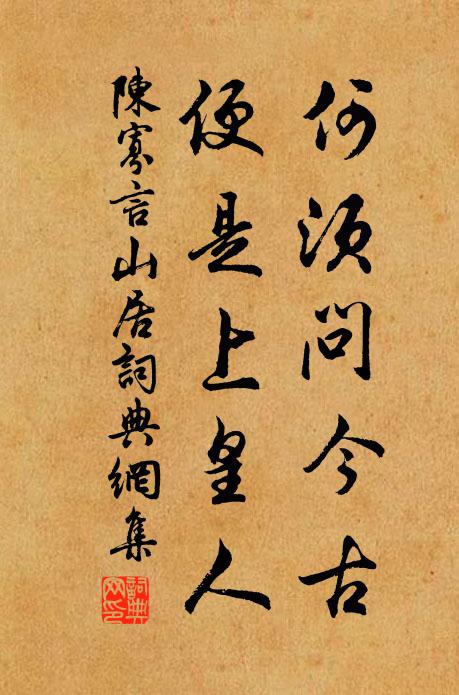 何須問今古
便是上皇人
陳寡言山居詞典網集
詞典网印